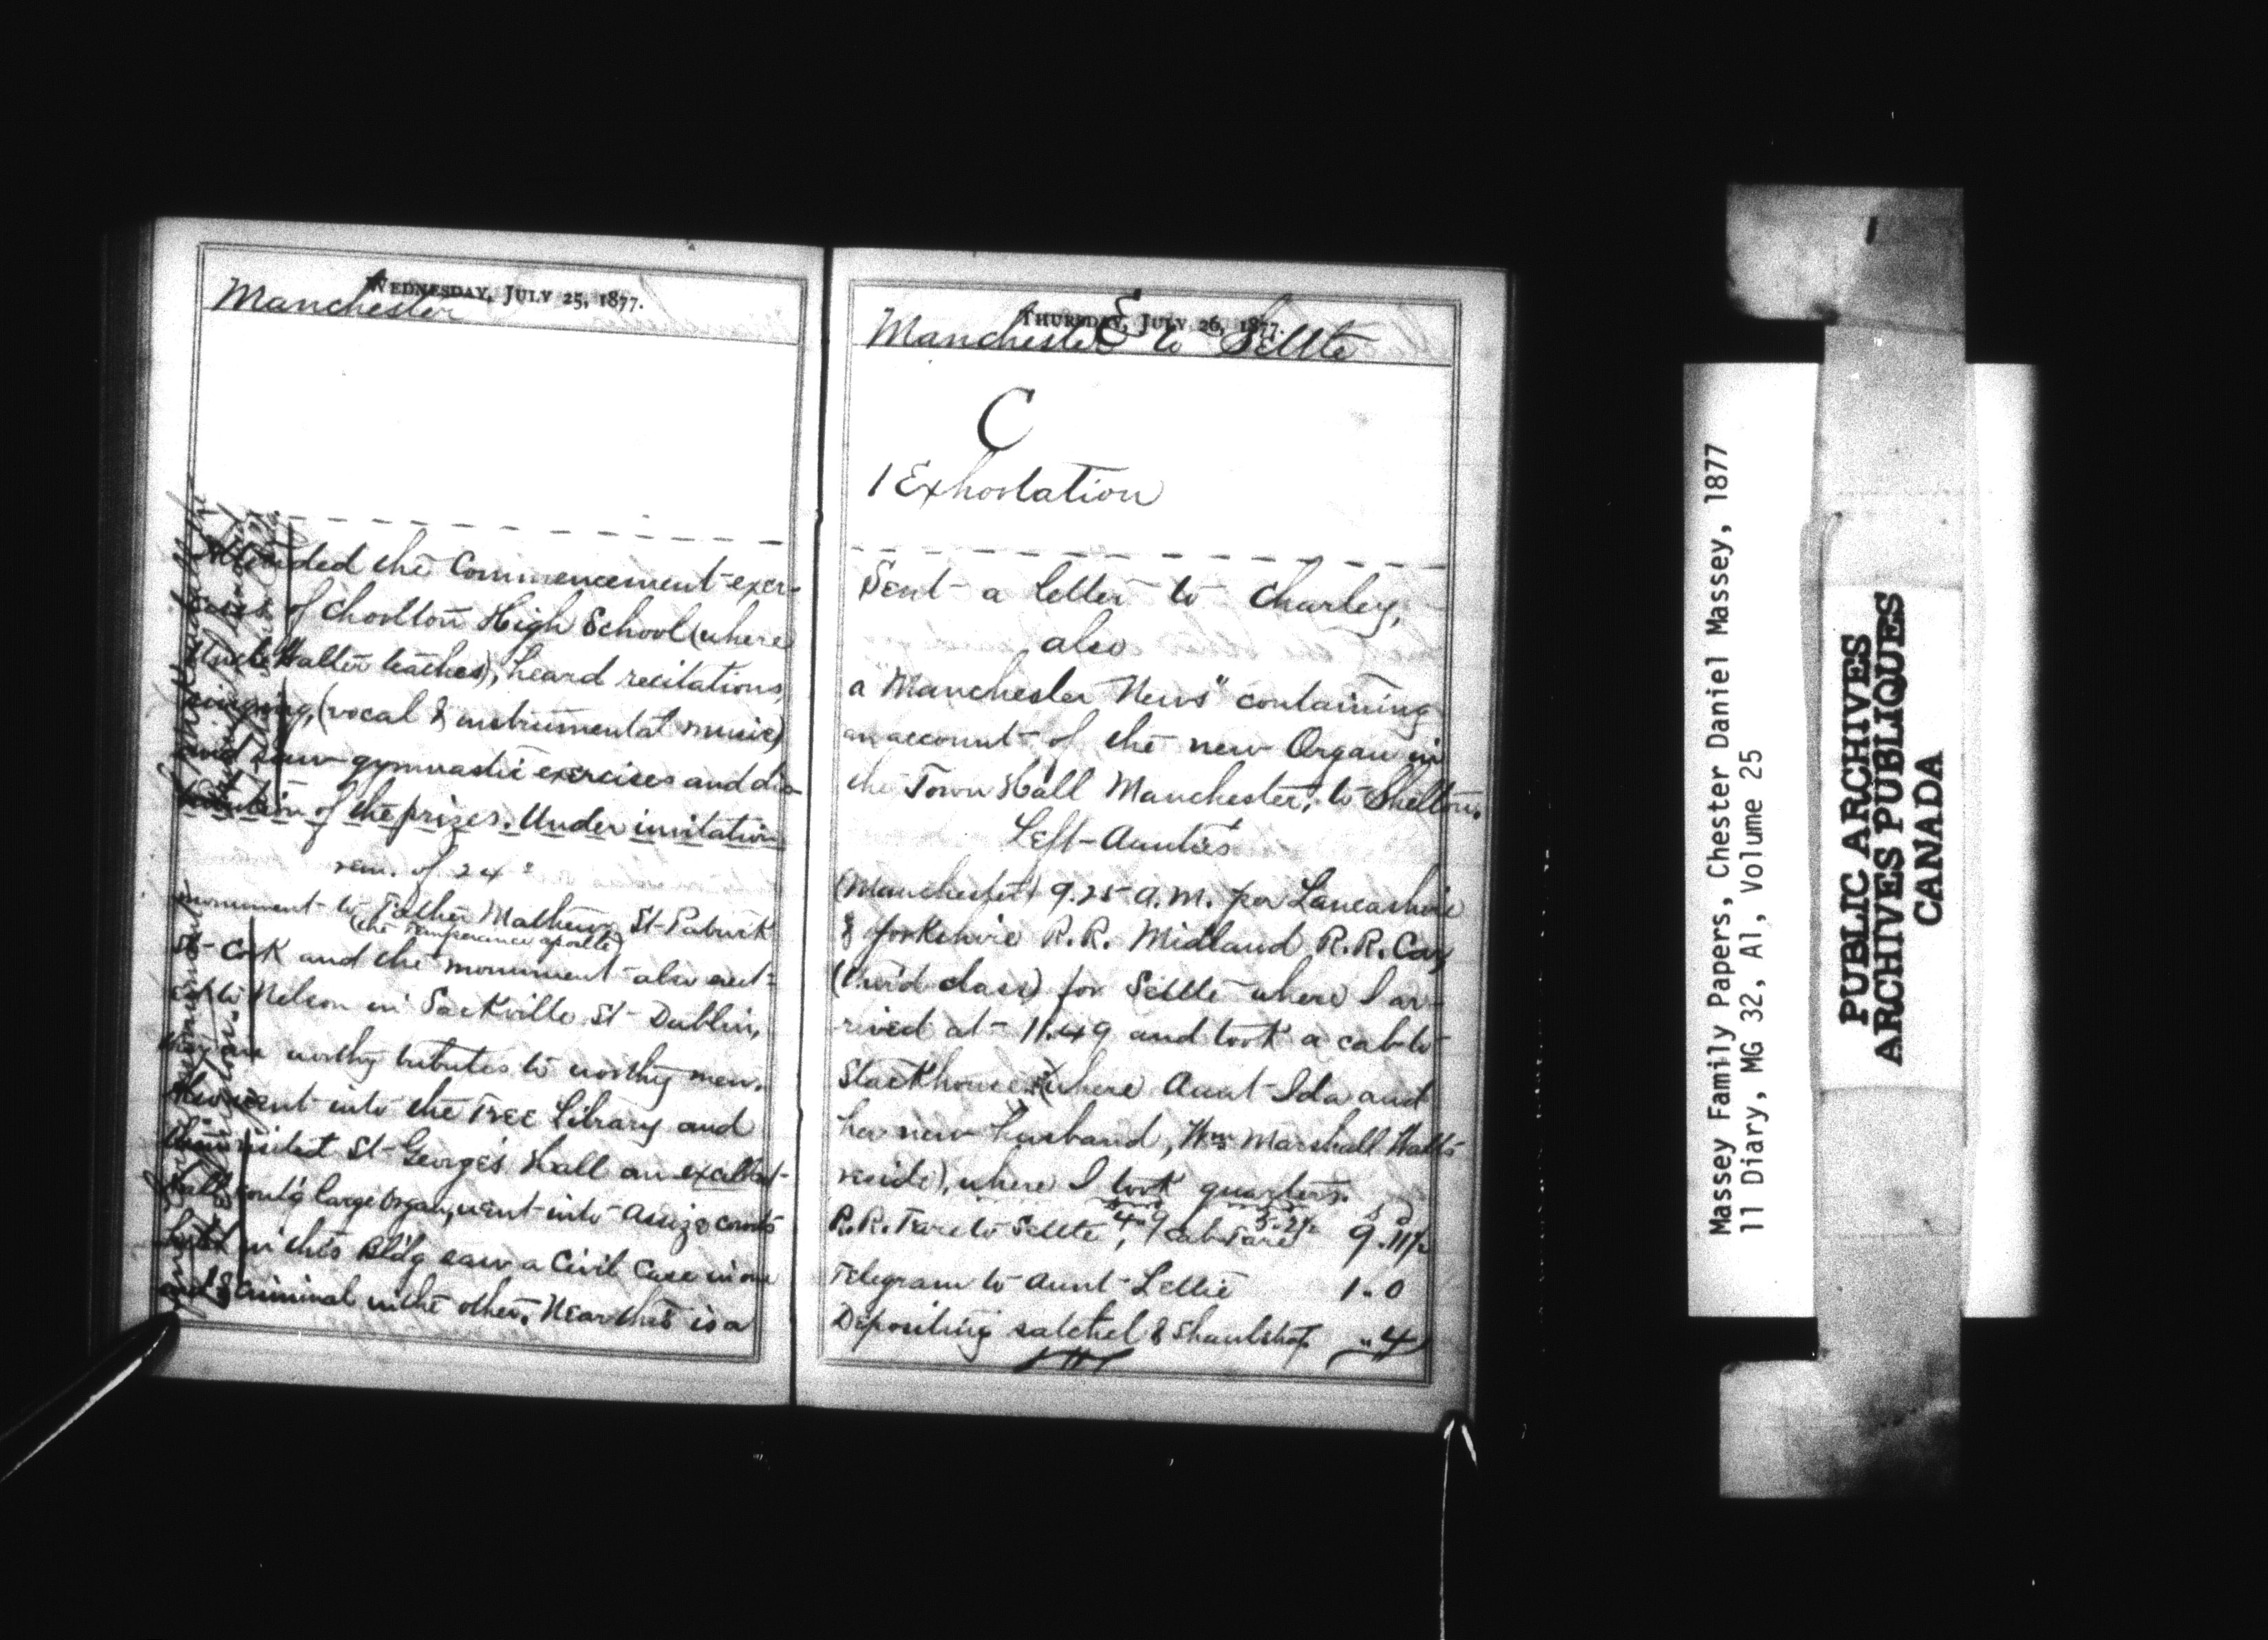 WEDNESDAY, JULY 25, 1877.
Manchester
Attended the Commencement exer-
of Chorlton High School (where
Uncle Walter teaches), heard recitations,
singing, (vocal & instrumental music)
and saw gymnastic exercises and dis-
tribution of the prizes. Under invitation
rem. of 24
monument to Father Mathew, St-Patrick
(the temperance apostle)
St- Cork and the monument also erect-
ed to Nelson in Sackville St- Dublin,
they are worthy tributes to worthy men.
went into the Free Library and
then visited St-George's Hall an excellent-
Hall cont'g large organ, went into Assize courts
in this Bldg saw a Civil Case in one
and Criminal in the other. Near this is a
THURSDAY, JULY 26, 1877.
Manchester to Settle
C
1 Exhortation
Sent a letter to Charley,
also
a "Manchester News" containing
an account of the new Organ in
the Town Hall Manchester, to Shelton.
Left Auntie's
(Manchester) 9.25 a.m. per Lancashire
& Yorkshire R.R. Midland R.R. Car
(third class) for Settle where I ar-
rived at 11.49 and took a cab to
Stackhouse (where Aunt Ida and
her new husband, Wm Marshall Watts
reside), where I took quarters.
R.R. Fare to Settle 4.9, Cab Fare 5.2½ 9.11½
Telegram to Aunt Lettie 1.0
Depositing satchel & Shawlstrap "4
Massey Family Papers, Chester Daniel Massey, 1877
11 Diary, MG 32, A1, Volume 25
PUBLIC ARCHIVES
ARCHIVES PUBLIQUES
CANADA